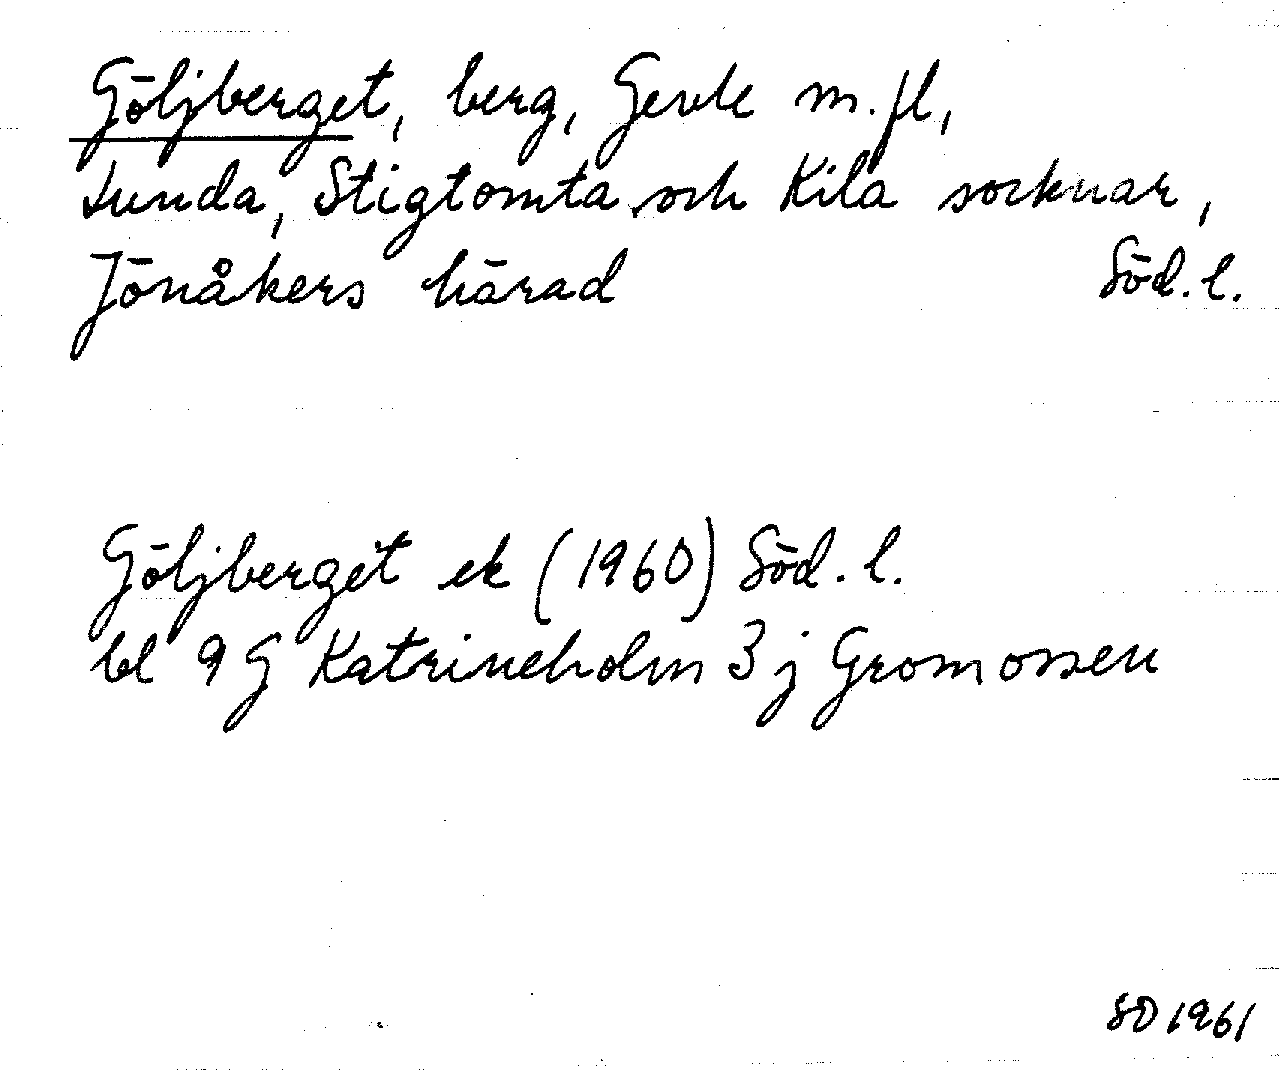 Göljberget, berg, Gevle m.fl,
Lunda, Stigtomta och Kila socknar,
Jönåkers härad Söd. l.
Göljberget ek (1960) Söd. l.
bl 9 G Katrineholm 3 j Gromossen
SO 1961